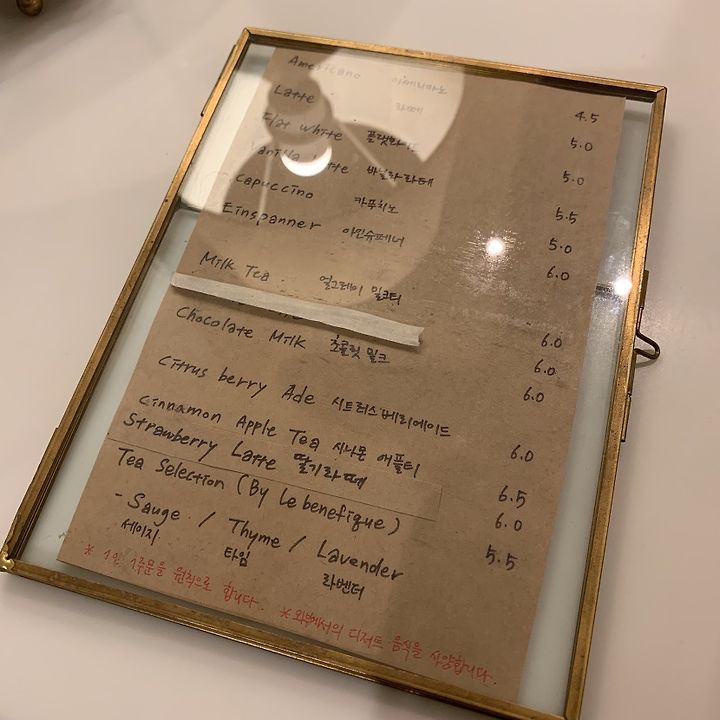 Americano 아메리카노 4.5
Latte 라떼 5.0
Flat white 플랫화이트 5.0
Vanilla Latte 바닐라라떼 5.5
Cappuccino 카푸치노 5.0
Einspanner 아인슈페너 6.0
Milk Tea 얼그레이 밀크티 6.0
6.0
Chocolate Milk 초콜릿 밀크 6.0
Citrus berry Ade 시트러스베리에이드 6.0
Cinnamon Apple Tea 시나몬 애플티 6.5
Strawberry Latte 딸기라떼 6.0
Tea Selection (By Lebenefique) 5.5
- Sauge / Thyme / Lavender
세이지 타임 라벤더
* 1인 1주문을 원칙으로 합니다. * 외부에서의 디저트 음식을 사양합니다.